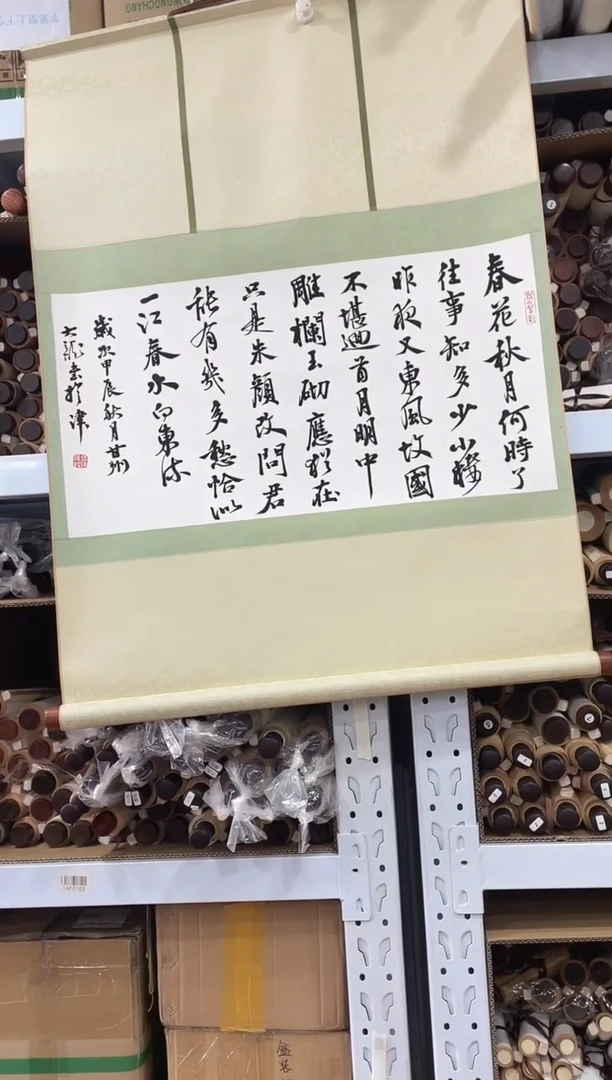 春花秋月何時了
往事知多少小樓
昨夜又東風故國
不堪迴首月明中
雕欄玉砌應猶在
只是朱顏改問君
能有幾多愁恰似
一江春水向東流
歲次甲辰秋月甘州
書於津
盒装